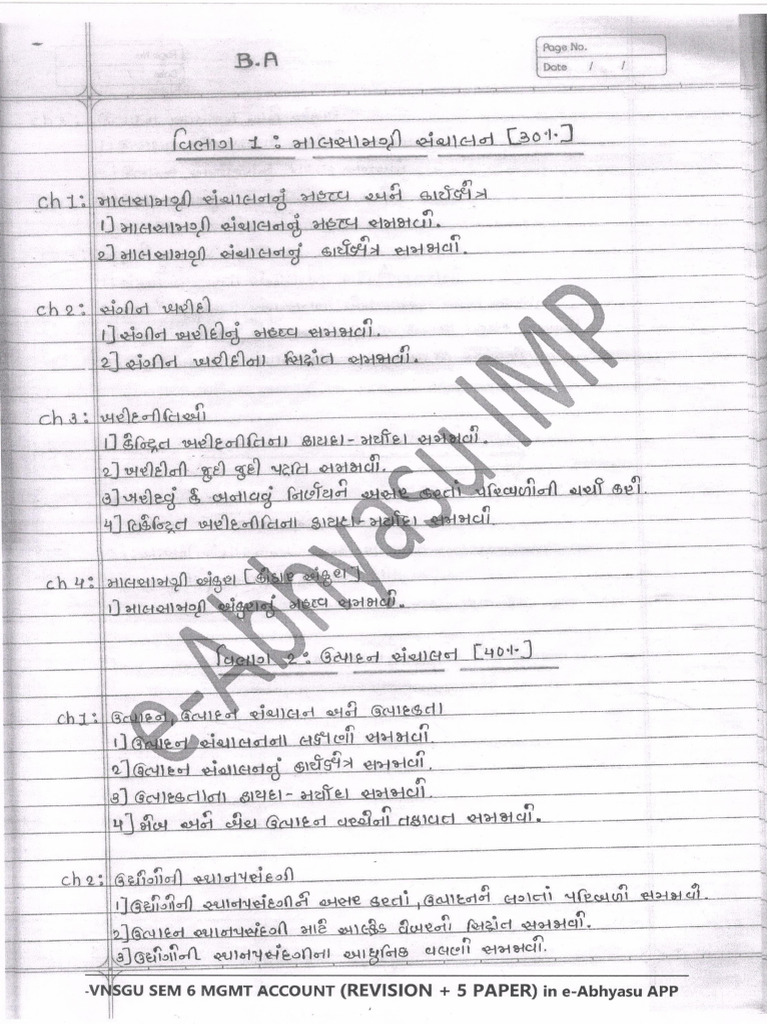 B.A
Page No.
Date / /
વિભાગ 1 : માલસામગ્રી સંચાલન [30%]
Ch 1: માલસામગ્રી સંચાલનનું મહત્વ અને કાર્યક્ષેત્ર
1] માલસામગ્રી સંચાલનનું મહત્વ સમજાવો.
2] માલસામગ્રી સંચાલનનું કાર્યક્ષેત્ર સમજાવો.
Ch 2: સંગીન ખરીદી
1] સંગીન ખરીદીનું મહત્વ સમજાવો.
2] સંગીન ખરીદીના સિદ્ધાંત સમજાવો.
Ch 3: ખરીદનીતિઓ
1] કેન્દ્રિત ખરીદનીતિના ફાયદા-મર્યાદા સમજાવો.
2] ખરીદીની જુદી જુદી પદ્ધતિ સમજાવો.
3] ખરીદવું કે બનાવવું નિર્ણયને અસર કરતાં પરિબળોની ચર્ચા કરો.
4] વિકેન્દ્રિત ખરીદનીતિના ફાયદા-મર્યાદા સમજાવો
Ch 4: માલસામગ્રી અંકુશ [સ્ટોક અંકુશ]
1] માલસામગ્રી અંકુશનું મહત્વ સમજાવો.
વિભાગ 2 : ઉત્પાદન સંચાલન [40%]
Ch 1: ઉત્પાદન, ઉત્પાદન સંચાલન અને ઉત્પાદકતા
1] ઉત્પાદન સંચાલનના લક્ષણો સમજાવો.
2] ઉત્પાદન સંચાલનનું કાર્યક્ષેત્ર સમજાવો.
3] ઉત્પાદકતાના ફાયદા-મર્યાદા સમજાવો.
4] જોબ અને બેચ ઉત્પાદન વચ્ચેનો તફાવત સમજાવો.
Ch 2: ઉદ્યોગોની સ્થાનપસંદગી
1] ઉદ્યોગોની સ્થાનપસંદગીને અસર કરતાં, ઉત્પાદનને લગતાં પરિબળો સમજાવો.
2] ઉત્પાદન સ્થાનપસંદગી માટે આલ્ફ્રેડ વેબરનો સિદ્ધાંત સમજાવો.
3] ઉદ્યોગોની સ્થાનપસંદગીના આધુનિક વલણો સમજાવો.
e-Abhyasu IMP
-VNSGU SEM 6 MGMT ACCOUNT (REVISION + 5 PAPER) in e-Abhyasu APP